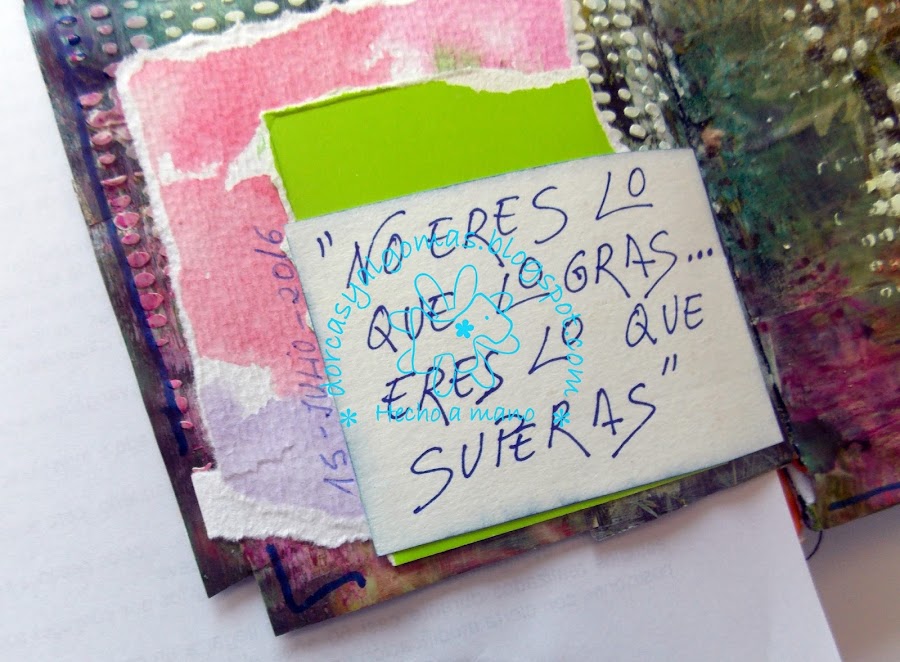 "NO ERES LO
QUE LOGRAS...
ERES LO QUE
SUPERAS"
15-JULIO-2016
dorcasyalgomas.blogspot.com
* Hecho a mano *